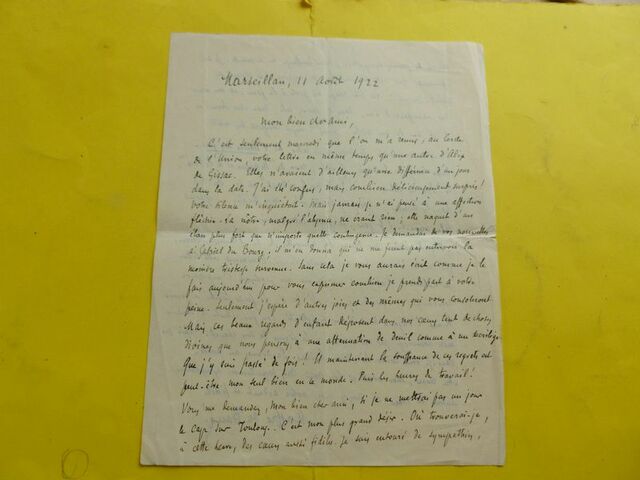 Marseillan, 11 Août 1922
Mon bien cher ami,
C'est seulement mercredi que l'on m'a remis, au Cercle
de l'Union, votre lettre en même temps qu'une autre d'Alix
de Gissac. Elles n'avaient d'ailleurs qu'une différence d'un jour
dans la date. J'ai été confus, mais combien délicieusement surpris!
Votre silence m'inquiétait. Mais jamais je n'ai pensé à une affection
flétrie. La nôtre, malgré l'absence, ne craint rien; elle naquit d'un
élan plus fort que n'importe quelle contingence. Je demandai de vos nouvelles
à Gabriel du Bourg. Il m'en donna qui ne me firent pas entrevoir la
moindre tristesse survenue. Sans cela je vous aurais écrit comme je le
fais aujourd'hui pour vous exprimer combien je prends part à votre
peine. Seulement j'espère d'autres joies et des mêmes qui vous consoleront.
Mais ces beaux regards d'enfant déposent dans nos cœurs tant de choses
divines que nous pensons à une atténuation de deuil comme à un sacrilège.
Que j'y suis passé de fois! Et maintenant la souffrance de ces regrets est
peut-être mon seul bien en ce monde. Puis les heures de travail!
Vous me demandez, mon bien cher ami, si je ne mettrai pas un jour
le cap sur Toulouse. C'est mon plus grand désir. Où trouverai-je,
à cette heure, des cœurs aussi fidèles. Je suis entouré de sympathies,